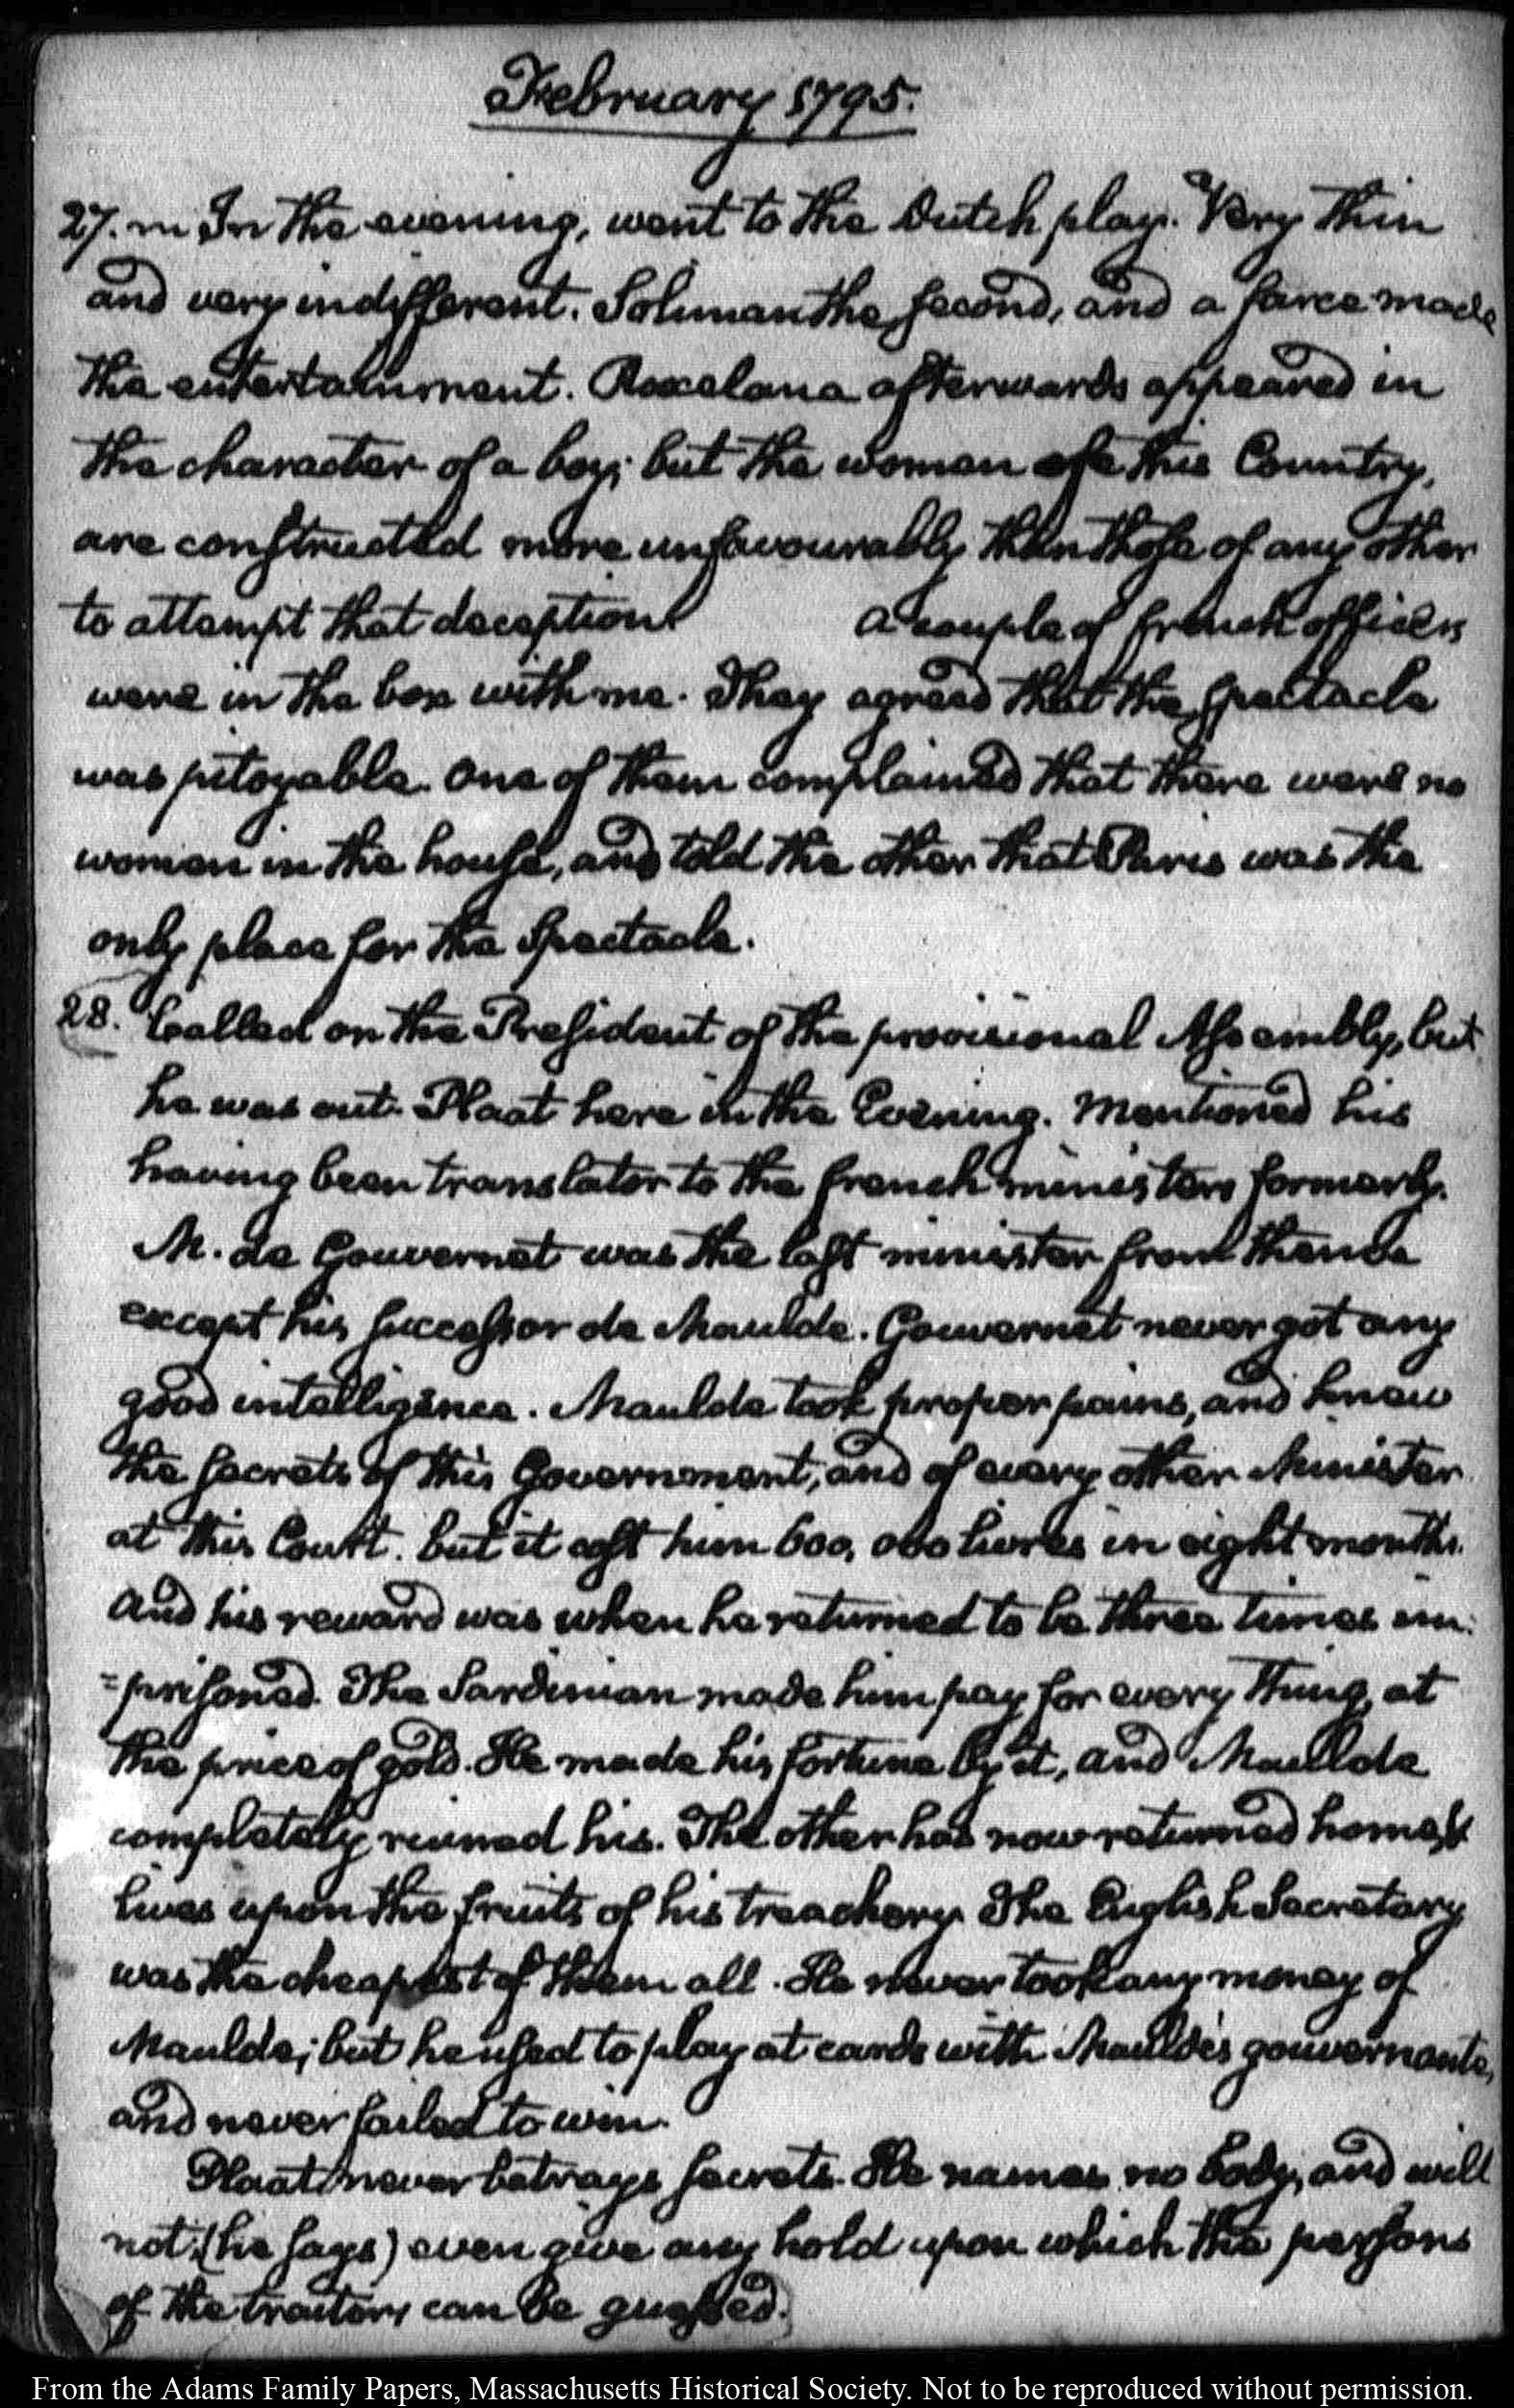 February 1795.
27. m In the evening, went to the Dutch play. Very thin
and very indifferent. Soliman the second, and a farce made
the entertainment. Roxelana afterwards appeared in
the character of a boy; but the women of this Country,
are constructed more unfavourably than those of any other
to attempt that deception. A couple of french officers
were in the box with me. They agreed that the spectacle
was pitoyable. One of them complained that there were no
women in the house, and told the other that Paris was the
only place for the Spectacle.
28. Called on the President of the provisional Assembly, but
he was out. Plaat here in the Evening. Mentioned his
having been translator to the french ministers formerly.
M. de Gouvernet was the last minister from thence
except his successor de Maulde. Gouvernet never got any
good intelligence. Maulde took proper pains, and knew
the secrets of this Government, and of every other Minister
at this Court. but it cost him 600,000 livres in eight months.
And his reward was when he returned to be three times im:
=prisoned. The Sardinian made him pay for every thing, at
the price of gold. He made his fortune by it, and Maulde
completely ruined his. The other has now returned home, &
lives upon the fruits of his treachery. The English Secretary
was the cheapest of them all. He never took any money of
Maulde; but he used to play at cards with Maulde's gouvernante,
and never failed to win.
Plaat never betrays secrets. He names no body, and will
not, (he says) even give any hold upon which the persons
of the traitors can be guessed.
From the Adams Family Papers, Massachusetts Historical Society. Not to be reproduced without permission.